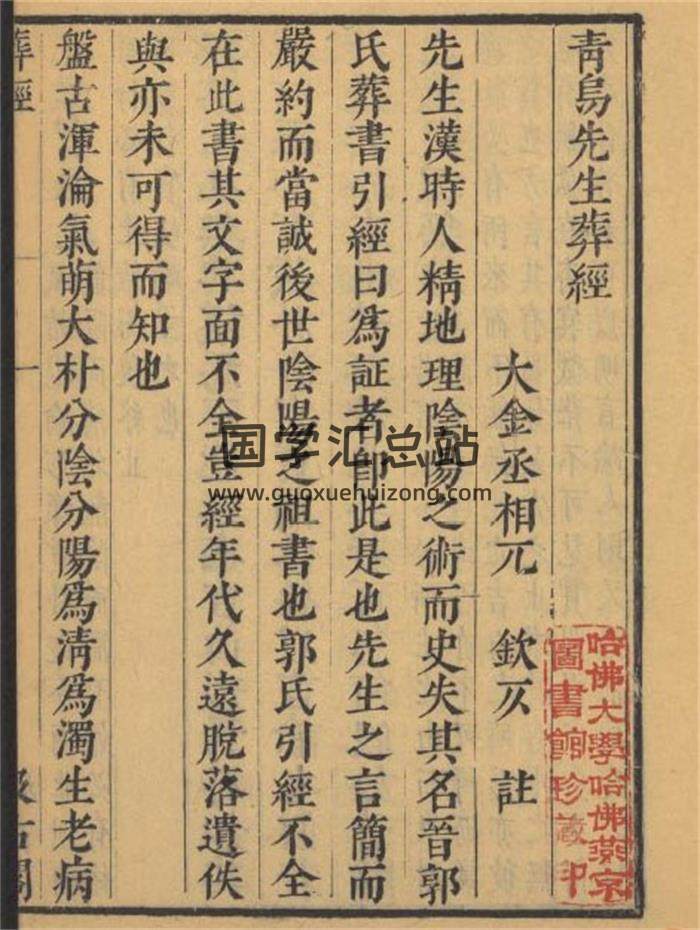 青烏先生葬經
大金丞相兀 欽仄 註
先生漢時人精地理陰陽之術而史失其名晉郭
氏葬書引經曰爲証者卽此是也先生之言簡而
嚴約而當誠後世陰陽之祖書也郭氏引經不全
在此書其文字面不全豈經年代久遠脫落遺佚
與亦未可得而知也
盤古渾淪氣萌大朴分陰分陽爲清爲濁生老病
葬經 一 汲古閣
哈佛大學哈佛燕京
圖書館珍藏印
国学汇总站
www.guoxuehuizong.com